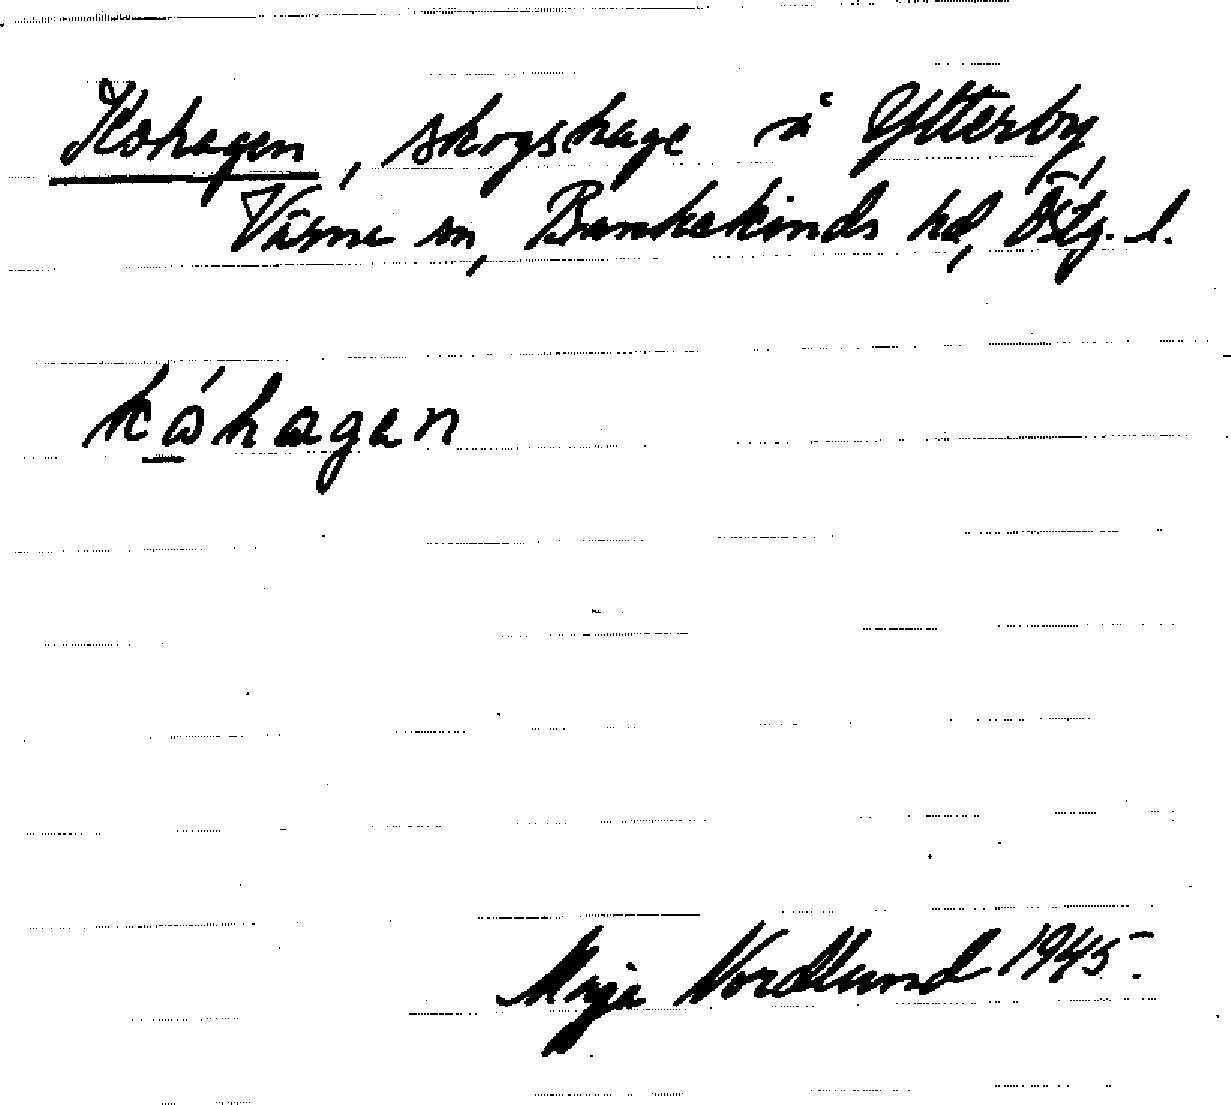 Kohagen, skogshage å Ytterby,
Vårna sn, Bankekinds hd, Östg. l.
kóhagen
Maja Nordlund 1945.